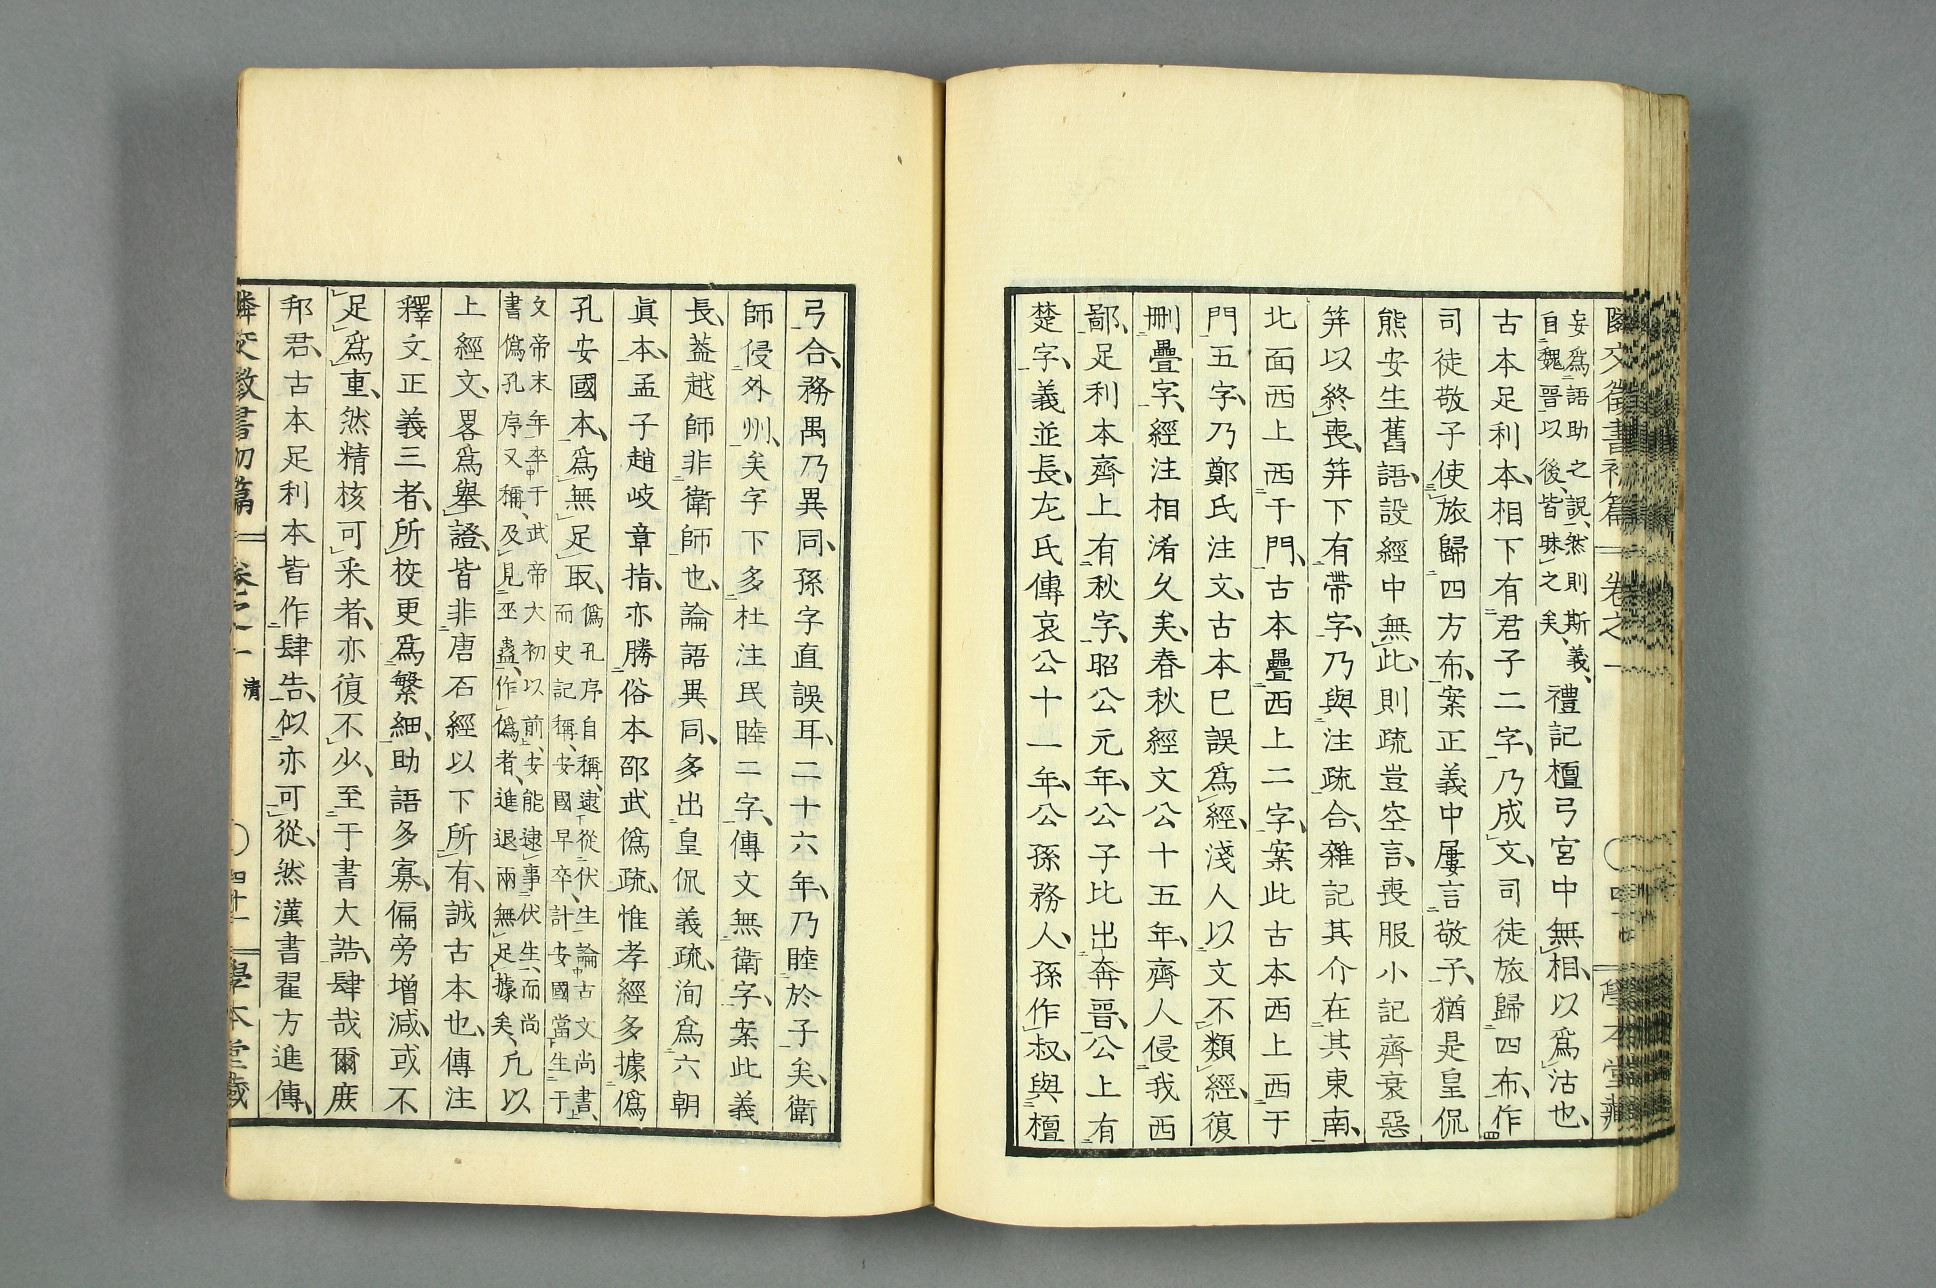 妄爲語助之説、然則斯義、
自魏晉以後、皆昧之矣、
禮記檀弓宮中無相、以爲沽也、
古本足利本、相下有君子二字、乃成文、司徒旅歸四布、作
司徒敬子使旅歸四方布、案正義中屢言敬子、猶是皇侃
熊安生舊語、設經中無此、則疏豈空言、喪服小記齊衰惡
笄以終喪、笄下有帶字、乃與注疏合、雜記其介在其東南、
北面西上西于門、古本疊西上二字、案此古本西上西于
門五字、乃鄭氏注文、古本已誤爲經、淺人以文不類經、復
刪疊字、經注相淆久矣、春秋經文公十五年、齊人侵我西
鄙、足利本齊上有秋字、昭公元年、公子比出奔晉、公上有
楚字、義並長、左氏傳哀公十一年、公孫務人、孫作叔、與檀
弓合、務禺乃異同、孫字直誤耳、二十六年、乃睦於子矣、衛
師侵外州、矣字下多杜注民睦二字、傳文無衛字、案此義
長、蓋越師非衛師也、論語異同、多出皇侃義疏、洵爲六朝
眞本、孟子趙岐章指、亦勝俗本邵武僞疏、惟孝經多據僞
孔安國本、爲無足取、
僞孔序自稱、逮從伏生論古文尚書、
而史記稱、安國早卒、計安國當生于
文帝末年、卒于武帝大初以前、安能逮事伏生、而尚
書僞孔序又稱、及見巫蠱、作僞者、進退兩無足據矣、
凡以
上經文、畧爲舉證、皆非唐石經以下所有、誠古本也、傳注
釋文正義三者、所校更爲繁細、助語多寡、偏旁增減、或不
足爲重、然精核可采者、亦復不少、至于書大誥、肆哉爾庶
邦君、古本足利本皆作肆告、似亦可從、然漢書翟方進傳、
卷之一 清
四十一
學本堂藏